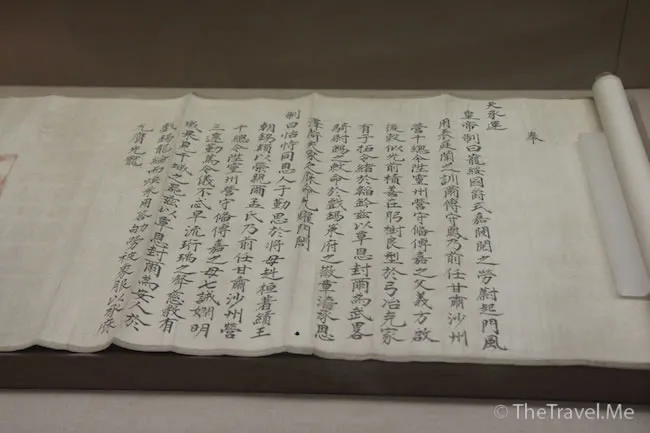 奉
天承運
皇帝制曰寵綏國爵式嘉閥閱之勞蔚起門風
用表庭闈之訓爾傅守乃前任甘肅沙州
營千總今陞靈州營守備傅嘉之父義方啟
後穀似光前積善在躬樹良型於弓冶克家
有子拓令緒於韜鈐茲以覃恩封爾為武畧
騎尉錫之敕命於戲錫策府之徽章濬承恩
澤荷天家之休命允耀門閭
制曰怙恃同恩人子勤思於將母赳桓著績王
朝錫類以榮親爾王氏乃前任甘肅沙州營
千總今陞靈州營守備傅嘉之母七誡嫻明
三遷勤篤令儀不忒早流珩瑀之聲慈教有
成果見干城之器茲以覃恩封爾為安人於
戲錫龍綸而煥采用答劬勞被象服以承庥
允膺光寵
© TheTravel.Me